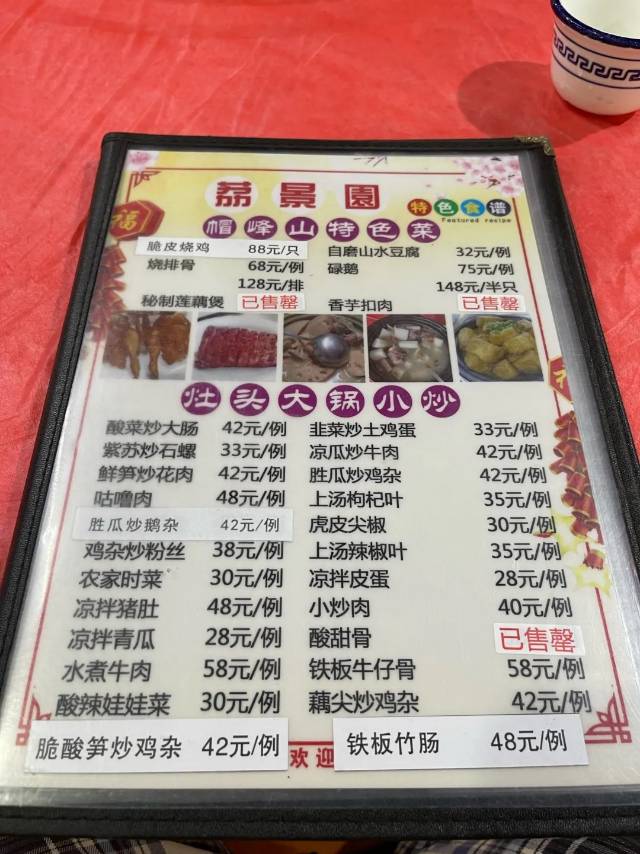 福
荔景園
特色食谱
Featured recipe
帽峰山特色菜
脆皮烧鸡 88元/只 自磨山水豆腐 32元/例
烧排骨 68元/例 碌鹅 75元/例
128元/排 148元/半只
秘制莲藕煲 已售罄 香芋扣肉 已售罄
灶头大锅小炒
酸菜炒大肠 42元/例 韭菜炒土鸡蛋 33元/例
紫苏炒石螺 33元/例 凉瓜炒牛肉 42元/例
鲜笋炒花肉 42元/例 胜瓜炒鸡杂 42元/例
咕噜肉 48元/例 上汤枸杞叶 35元/例
胜瓜炒鹅杂 42元/例 虎皮尖椒 30元/例
鸡杂炒粉丝 38元/例 上汤辣椒叶 35元/例
农家时菜 30元/例 凉拌皮蛋 28元/例
凉拌猪肚 48元/例 小炒肉 40元/例
凉拌青瓜 28元/例 酸甜骨 已售罄
水煮牛肉 58元/例 铁板牛仔骨 58元/例
酸辣娃娃菜 30元/例 藕尖炒鸡杂 42元/例
脆酸笋炒鸡杂 42元/例 欢迎 铁板竹肠 48元/例